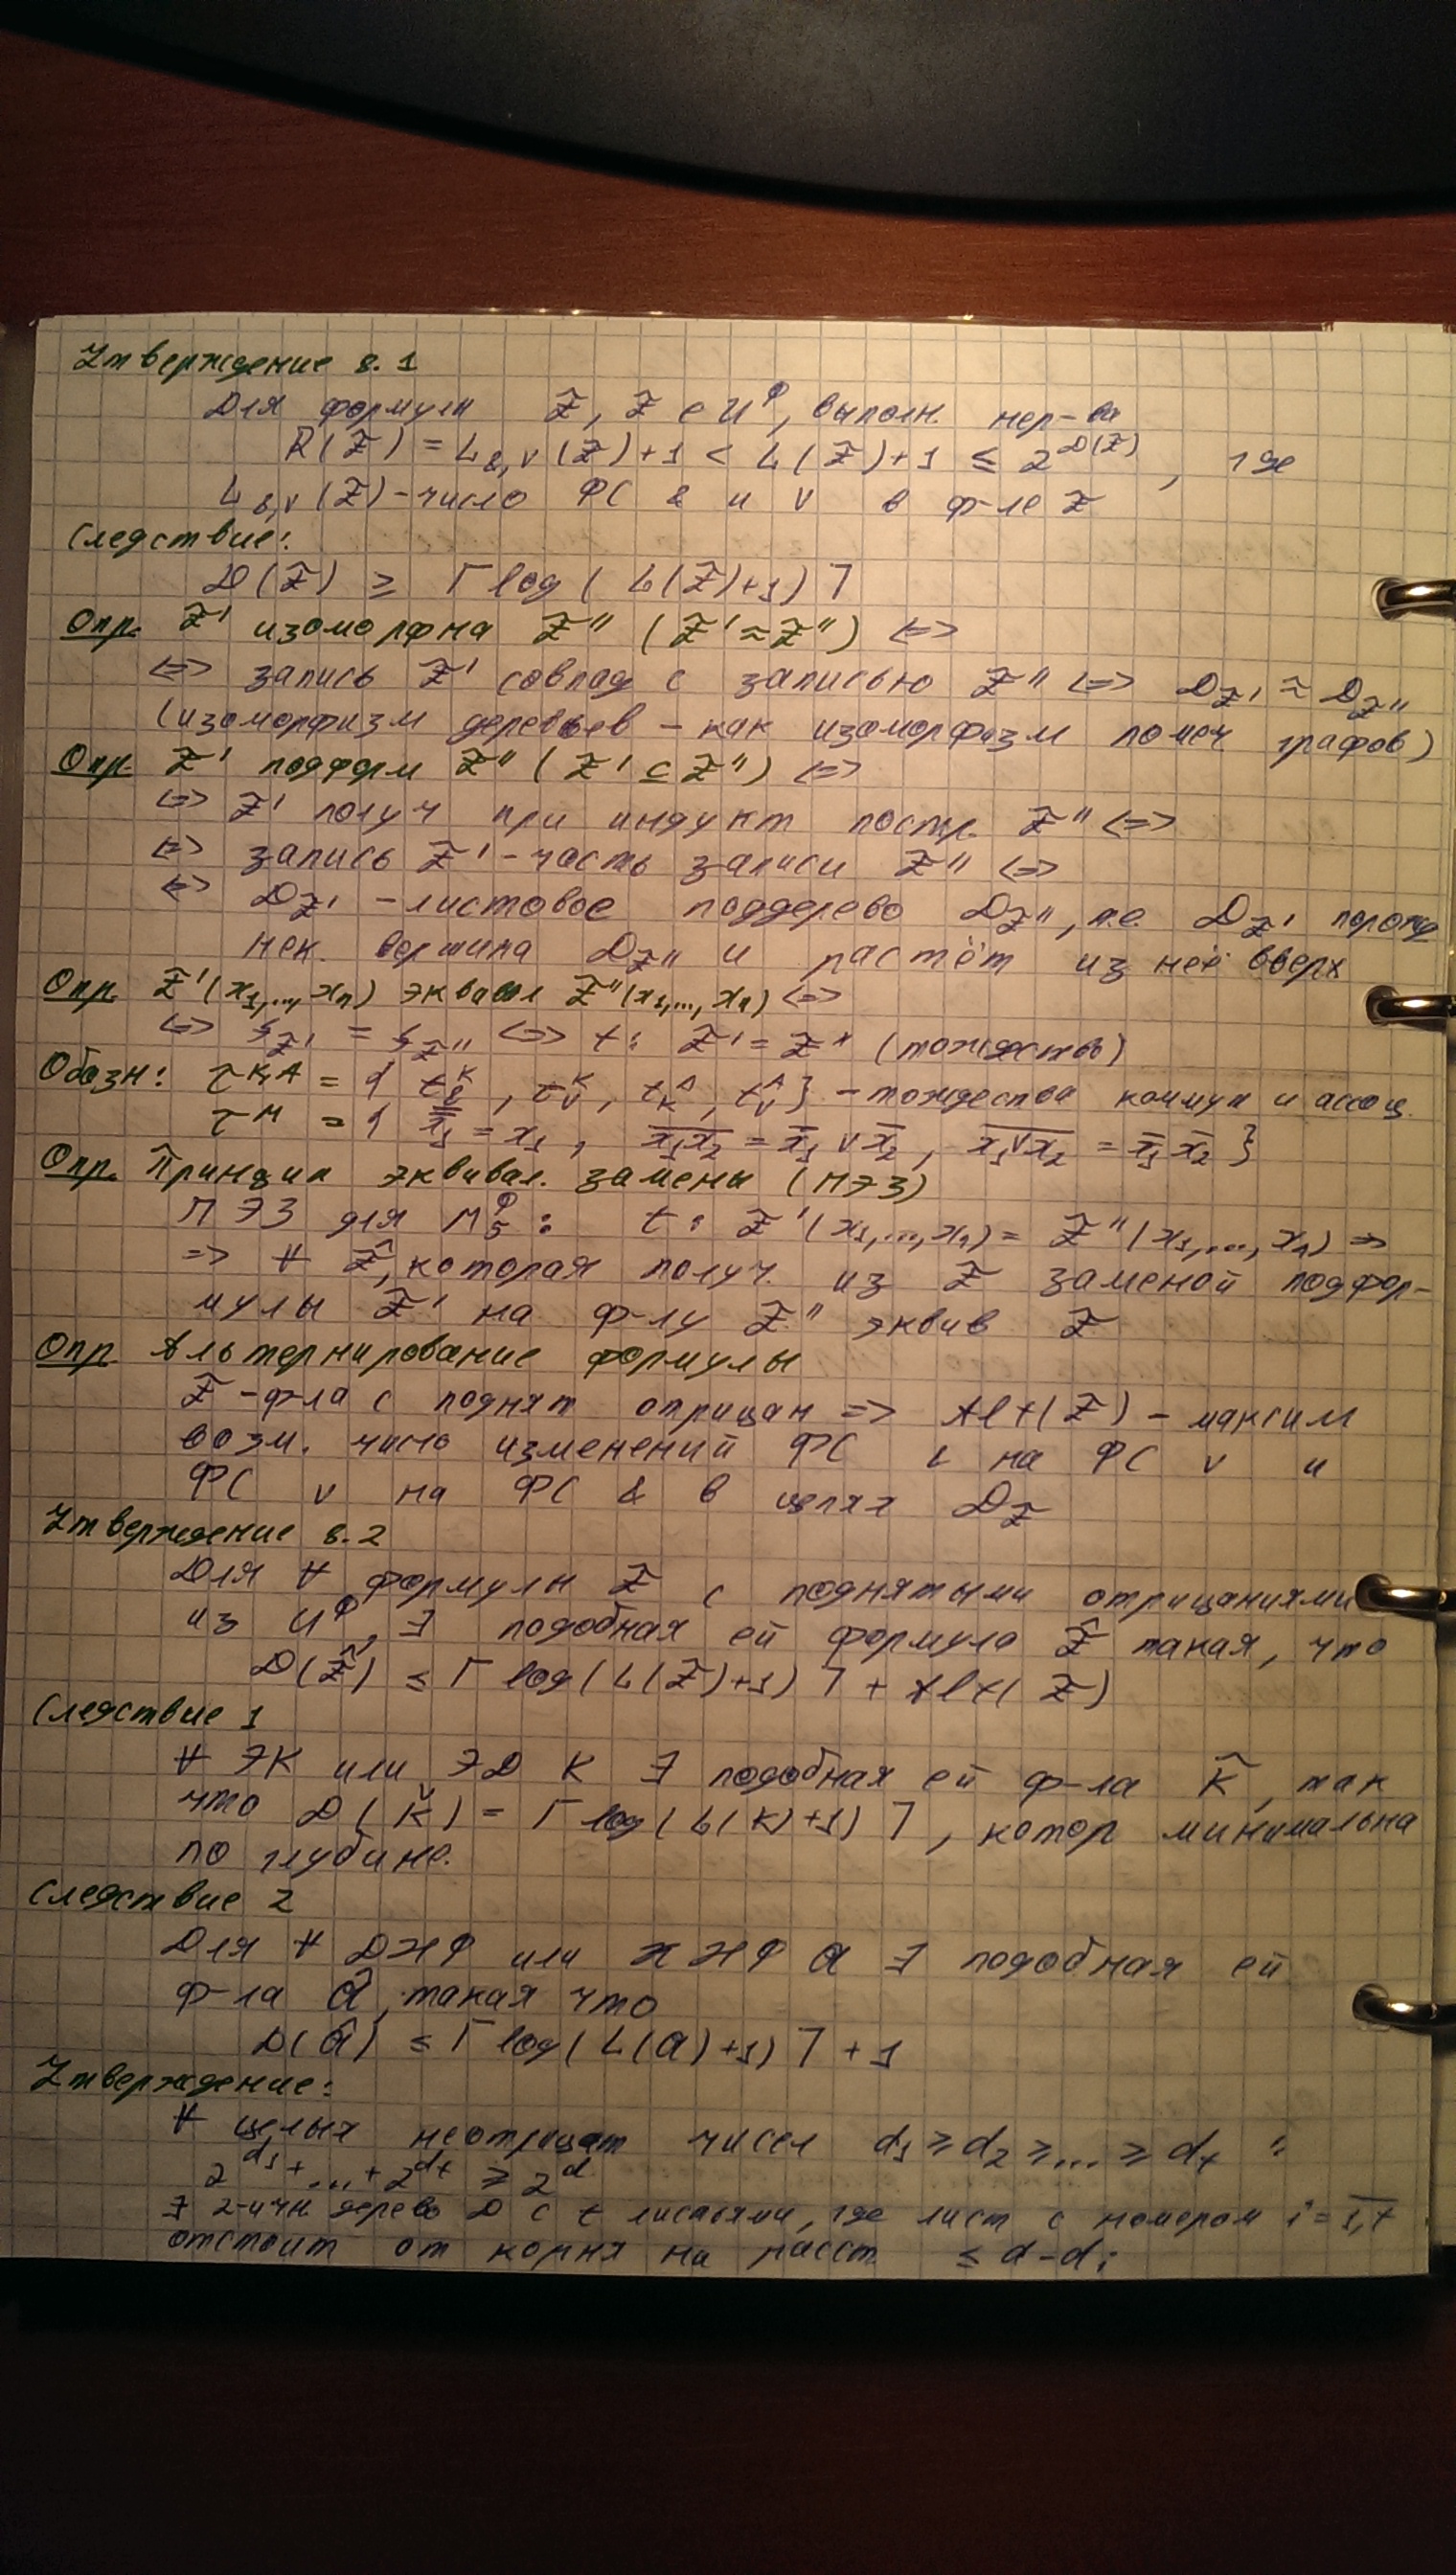 Утверждение 8.1
Для формулы F, F ∈ U^Φ, выполн. нер-ва
R(F) = L_{&,∨}(F)+1 < L(F)+1 ≤ 2^{D(F)}, где
L_{&,∨}(F) - число ФС & и ∨ в ф-ле F
Следствие:
D(F) ≥ ⌈log(L(F)+1)⌉
Опр. F' изоморфна F'' (F' ≈ F'') <=>
<=> запись F' совпад с записью F'' <=> D_{F'} ≈ D_{F''}
(изоморфизм деревьев - как изоморфизм помеч графов)
Опр. F' подформ F'' (F' ⊆ F'') <=>
<=> F' получ при индукт постр. F'' <=>
<=> запись F' - часть записи F'' <=>
<=> D_{F'} - листовое поддерево D_{F''}, т.е. D_{F'} порожд
нек. вершина D_{F''} и растёт из неё вверх
Опр. F'(x₁,...,xₙ) эквивал F''(x₁,...,xₙ) <=>
<=> f_{F'} = f_{F''} <=> t: F' = F'' (тождество)
Обозн: τ^{КА} = { t^К_&, t^К_∨, t^А_К, t^А_∨ } - тождества коммут и ассоц.
τ^М = { x̿₁ = x₁, \overline{x₁x₂} = x̄₁ ∨ x̄₂, \overline{x₁∨x₂} = x̄₁ x̄₂ }
Опр. Принцип эквивал. замены (ПЭЗ)
ПЭЗ для U^Φ_Б: t: F'(x₁,...,xₙ) = F''(x₁,...,xₙ) =>
=> ∀ F̂, которая получ. из F заменой подфор-
мулы F' на ф-лу F'' эквив F
Опр. Альтернирование формулы
F - ф-ла с поднят отрицан => Alt(F) - максим
возм. число изменений ФС & на ФС ∨ и
ФС ∨ на ФС & в цепях D_F
Утверждение 8.2
Для ∀ формулы F с поднятыми отрицаниями
из U^Φ, ∃ подобная ей формула F̌ такая, что
D(F̌) ≤ ⌈log(L(F)+1)⌉ + Alt(F)
Следствие 1
∀ ЭК или ЭД K ∃ подобная ей ф-ла Ǩ, так
что D(Ǩ) = ⌈log(L(K)+1)⌉, котор минимальна
по глубине.
Следствие 2
Для ∀ ДНФ или КНФ A ∃ подобная ей
ф-ла Ǎ, такая что
D(Ǎ) ≤ ⌈log(L(A)+1)⌉ + 1
Утверждение:
∀ целых неотрицат чисел d₁ ≥ d₂ ≥ ... ≥ dₜ :
2^{d₁} + ... + 2^{dₜ} ≥ 2^d
∃ 2-ичн дерево D с t листьями, где лист с номером i = \overline{1,t}
отстоит от корня на расст ≤ d - dᵢ